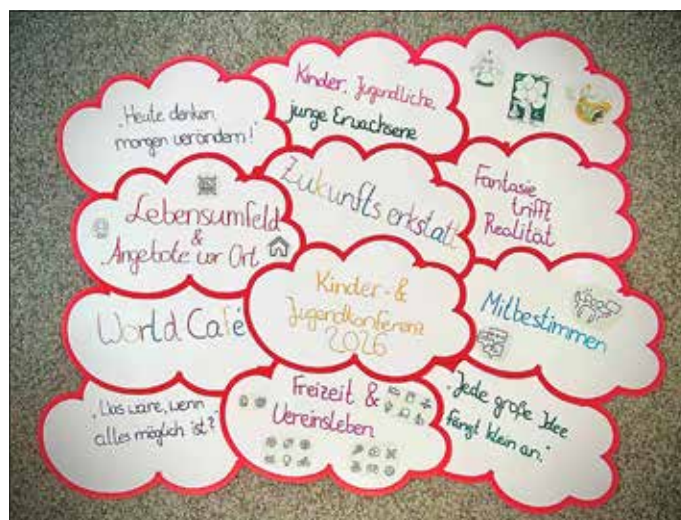 „Heute denken,
morgen verändern!"
Kinder, Jugendliche,
junge Erwachsene
Lebensumfeld
&
Angebote vor Ort
Zukunfts erkstatt
Fantasie
trifft
Realität
World Café
Kinder- &
Jugendkonferenz
2026
Mitbestimmen
„Was wäre, wenn
alles möglich ist?"
Freizeit &
Vereinsleben
„Jede große Idee
fängt klein an."